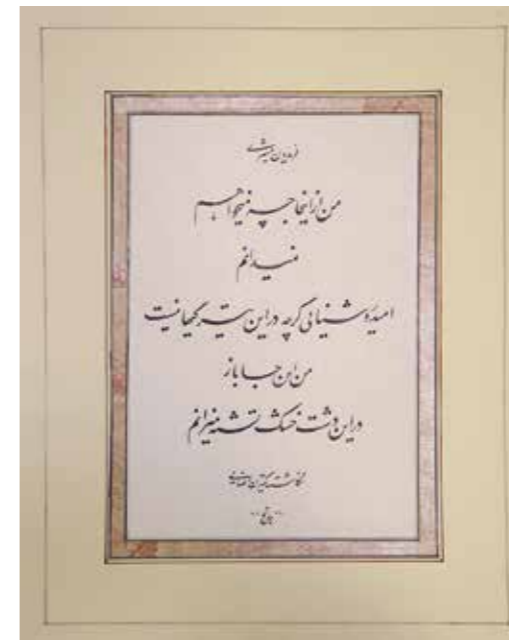 فریدون مشیری
من از اینجا چه میخواهم
نمیدانم
امید روشنائی گرچه در این تیرگیها نیست
من این جا باز
در این دشت خشک تشنه میرانم